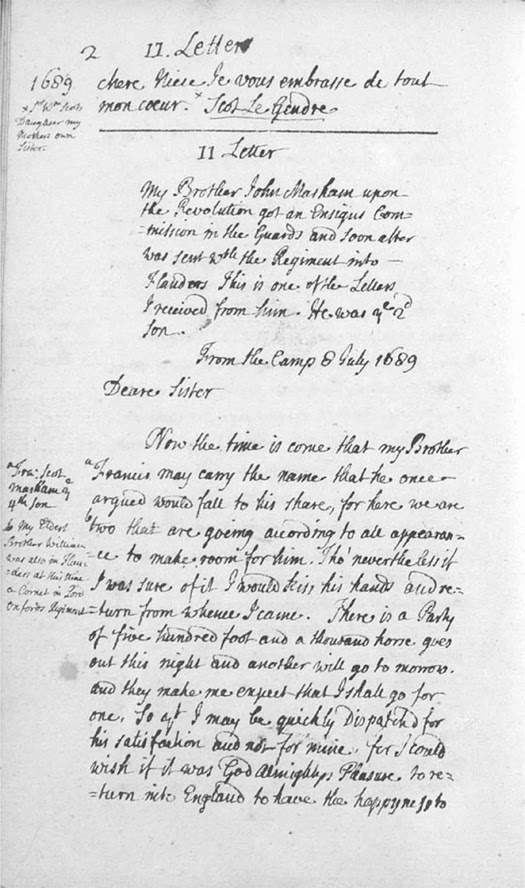 2 II. Letter
1689
chere Niese Je vous embrasse de tout
mon coeur. x Scot Le Gendre
x Sr Wm Scots
Daughter my
Mothers own
Sister.
II Letter
My Brother John Masham upon
the Revolution got an Ensigns Com=
=mission in the Guards and soon after
was sent wth the Regiment into —
Flanders This is one of the Letters
I received from him. He was ye 2d
son.
From the Camp 8 July 1689
Deare Sister
Now the time is come that my Brother
a Francis may carry the name that he once
argued would fall to his share, for here we are
b two that are going according to all appearan=
=ce to make room for him. Tho' neverthelesse if
I was sure of it I would kiss his hands and re=
=turn from whence I came. There is a Party
of five hundred foot and a thousand horse goes
out this night and another will go to morrow.
and they make me expect that I shall go for
one. So yt I may be quickly Dispatch'd for
his satisfaction and not for mine. for I could
wish if it was God Almightys Pleasure to re=
=turn into England to have the happyness to
a Fra: Scot
Masham ye
4th son
b My Eldest
Brother William
was also in Flan=
=ders at this time
a Cornet in Lord
Oxfords Regiment